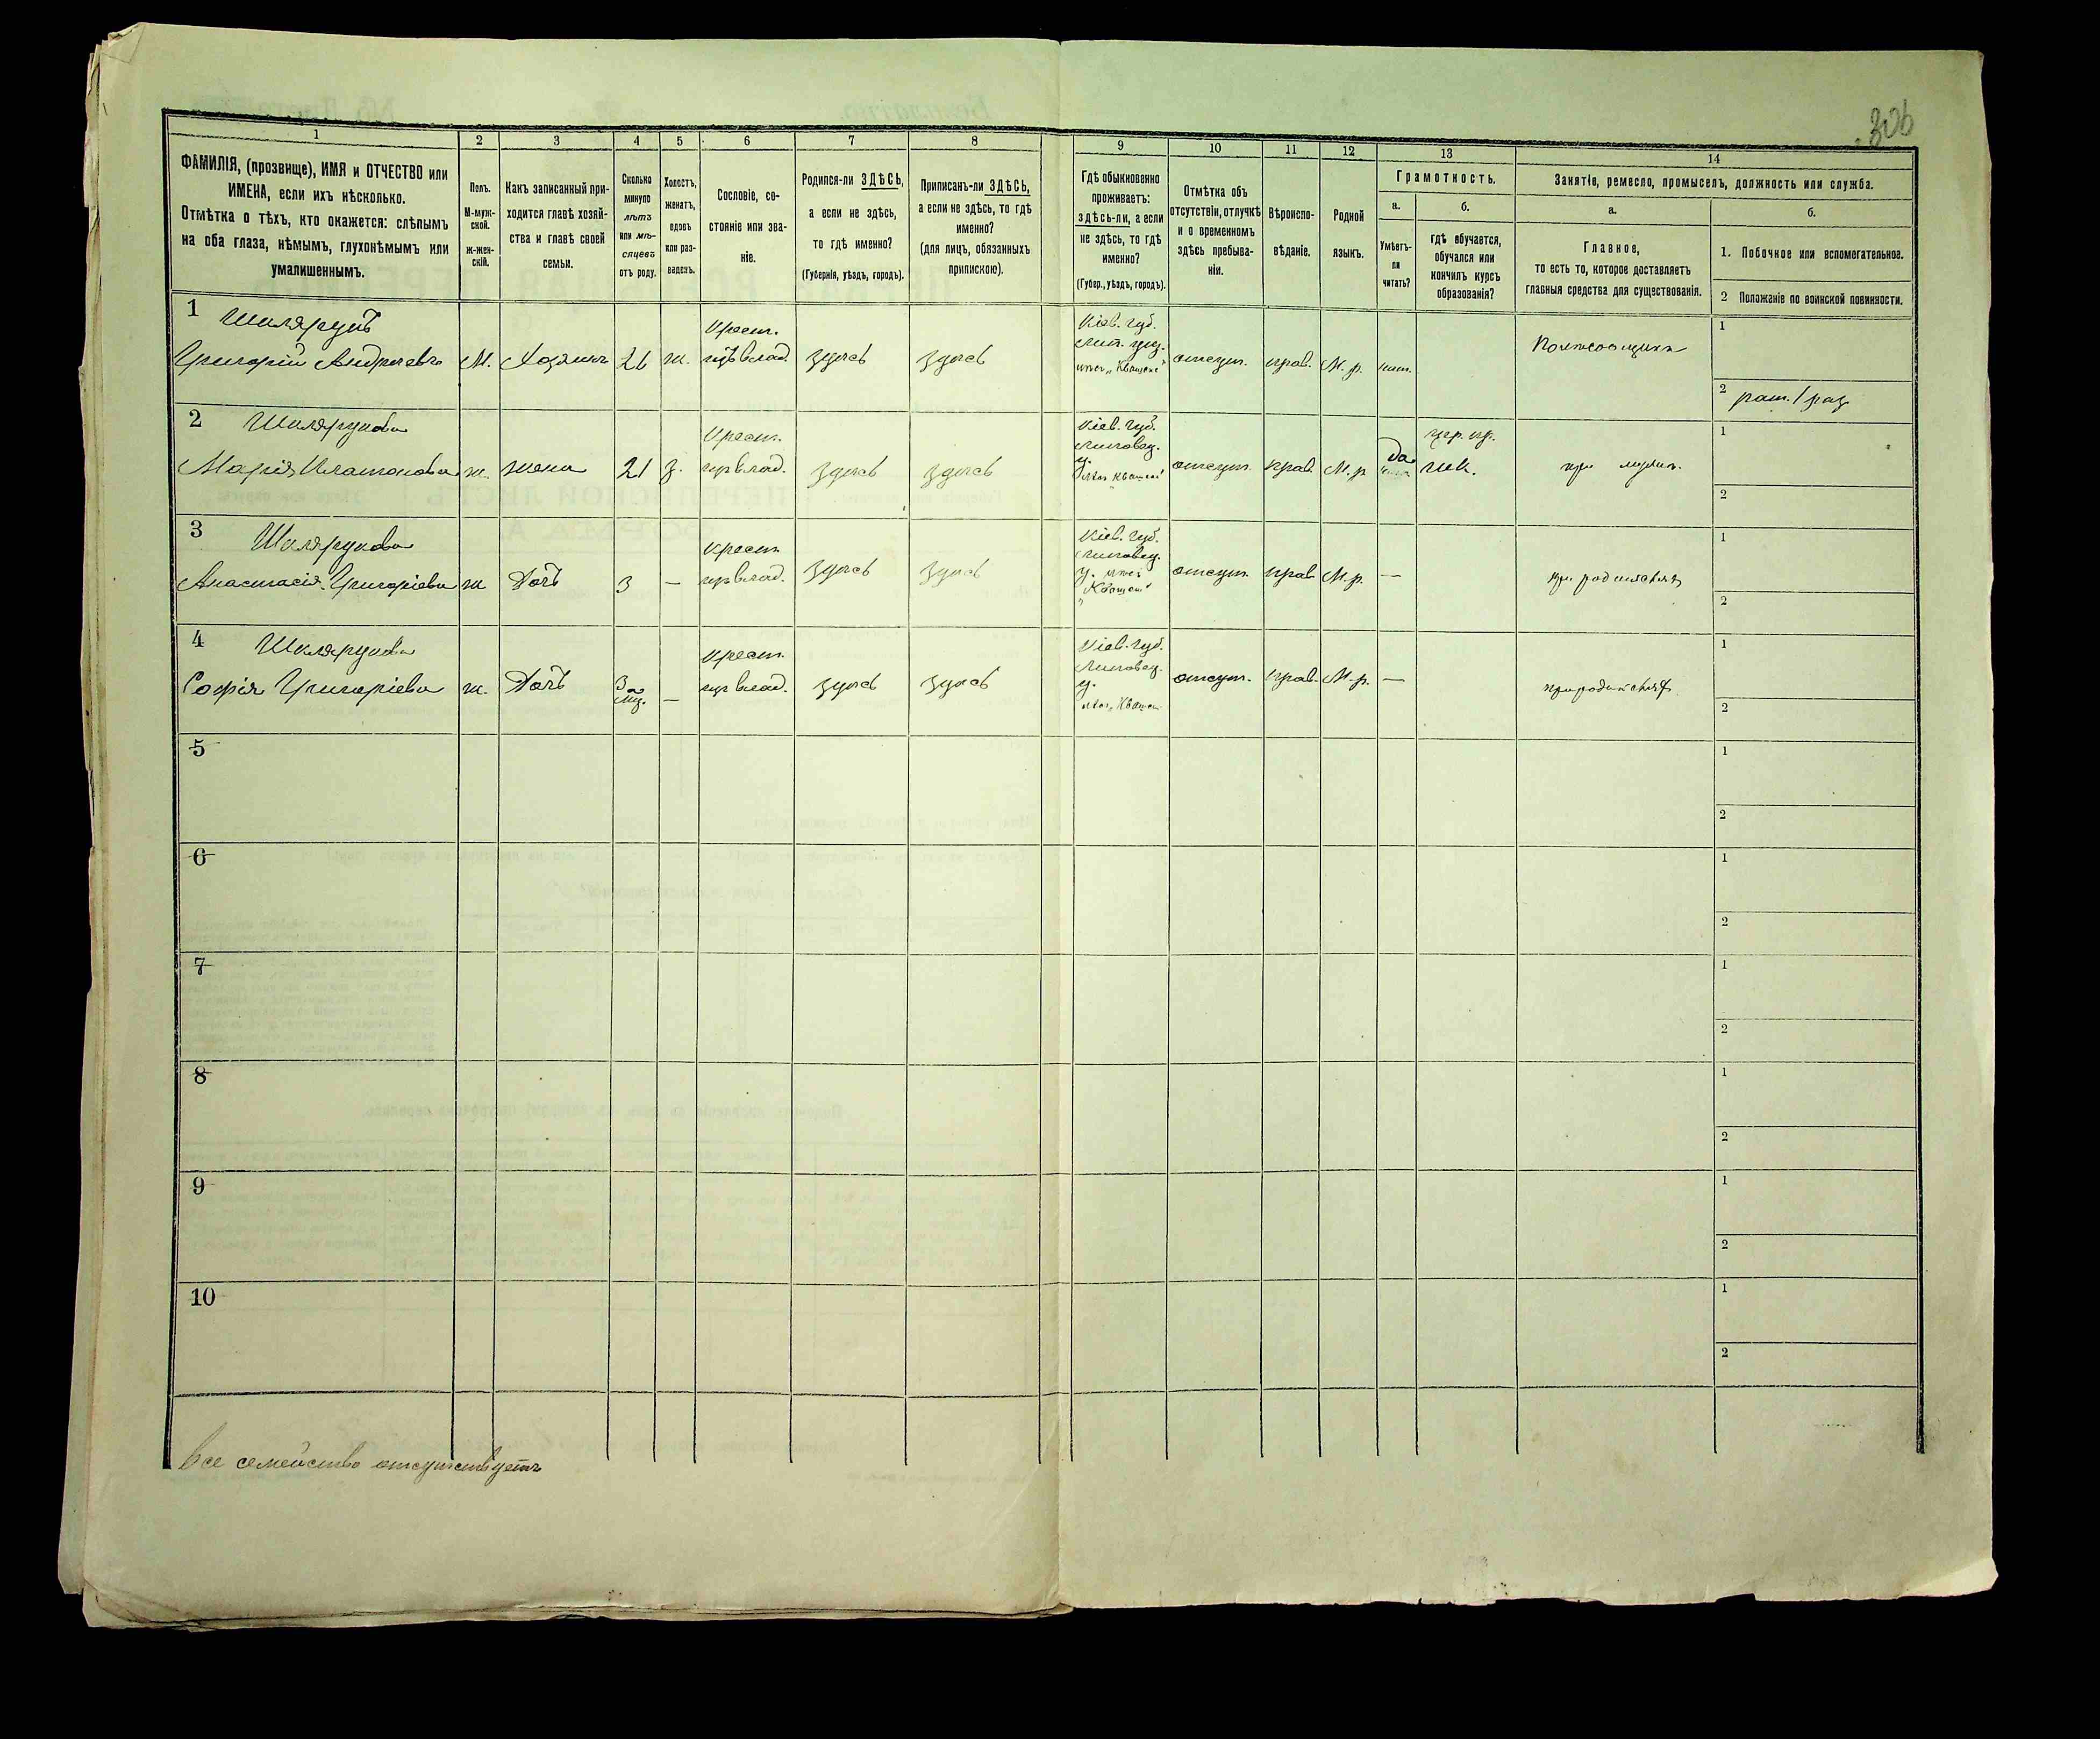 306
1
2
3
4
5
6
7
8
9
10
11
12
13
14
ФАМИЛІЯ, (прозвище), ИМЯ и ОТЧЕСТВО или
ИМЕНА, если ихъ нѣсколько.
Отмѣтка о тѣхъ, кто окажется: слѣпымъ
на оба глаза, нѣмымъ, глухонѣмымъ или
умалишеннымъ.
Полъ.
М-муж-
ской.
ж-жен-
скій.
Какъ записанный при-
ходится главѣ хозяй-
ства и главѣ своей
семьи.
Сколько
минуло
лѣтъ
или мѣ-
сяцевъ
отъ роду.
Холостъ,
женатъ,
вдовъ
или раз-
веденъ.
Сословіе, со-
стояніе или зва-
ніе.
Родился-ли ЗДѢСЬ,
а если не здѣсь,
то гдѣ именно?
(Губернія, уѣздъ, городъ).
Приписанъ-ли ЗДѢСЬ,
а если не здѣсь, то гдѣ
именно?
(для лицъ, обязанныхъ
припискою).
Гдѣ обыкновенно
проживаетъ:
здѣсь-ли, а если
не здѣсь, то гдѣ
именно?
(Губер., уѣздъ, городъ).
Отмѣтка объ
отсутствіи, отлучкѣ
и о временномъ
здѣсь пребыва-
ніи.
Вѣроиспо-
вѣданіе.
Родной
языкъ.
Грамотность.
а.
Умѣетъ-
ли
читать?
б.
гдѣ обучается,
обучался или
кончилъ курсъ
образованія?
Занятіе, ремесло, промыселъ, должность или служба.
а.
Главное,
то есть то, которое доставляетъ
главныя средства для существованія.
б.
1. Побочное или вспомогательное.
2 Положеніе по воинской повинности.
1
Шклярукъ
Григорій Андреевъ
М.
Хозяинъ
26
ж.
крест.
влад.
здѣсь
здѣсь
Кіев. губ.
отсут.
прав.
М. р.
1
2 рат. 1 раз
2
Шклярукова
Марія Платонова
ж.
жена
21
з.
крест.
влад.
здѣсь
здѣсь
Кіев. губ.
Липовец.
у.
отсут.
прав.
М. р.
да
при мужѣ.
1
2
3
Шклярукова
Анастасія Григоріева
ж
Дочь
3
—
крест.
влад.
здѣсь
здѣсь
Кіев. губ.
Липовец.
у.
отсут.
прав
М. р.
—
при родителяхъ
1
2
4
Шклярукова
Софія Григоріева
ж.
Дочь
3
—
крест.
влад.
здѣсь
здѣсь
Кіев. губ.
Липовец.
у.
отсут.
прав.
М. р.
—
при родителяхъ
1
2
5
1
2
6
1
2
7
1
2
8
1
2
9
1
2
10
1
2
все семейство отсутствуетъ